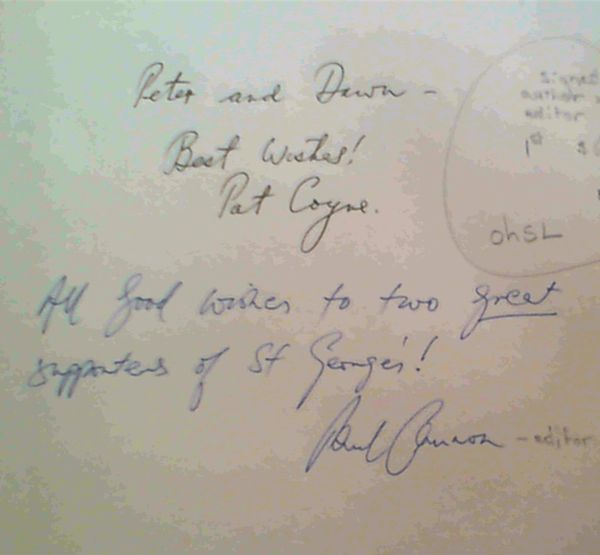 Peter and Dawn -
Best Wishes!
Pat Coyne.
signed
author
editor
1st $
ohSL
All good wishes to two great
supporters of St George's!
Paul Cannon - editor